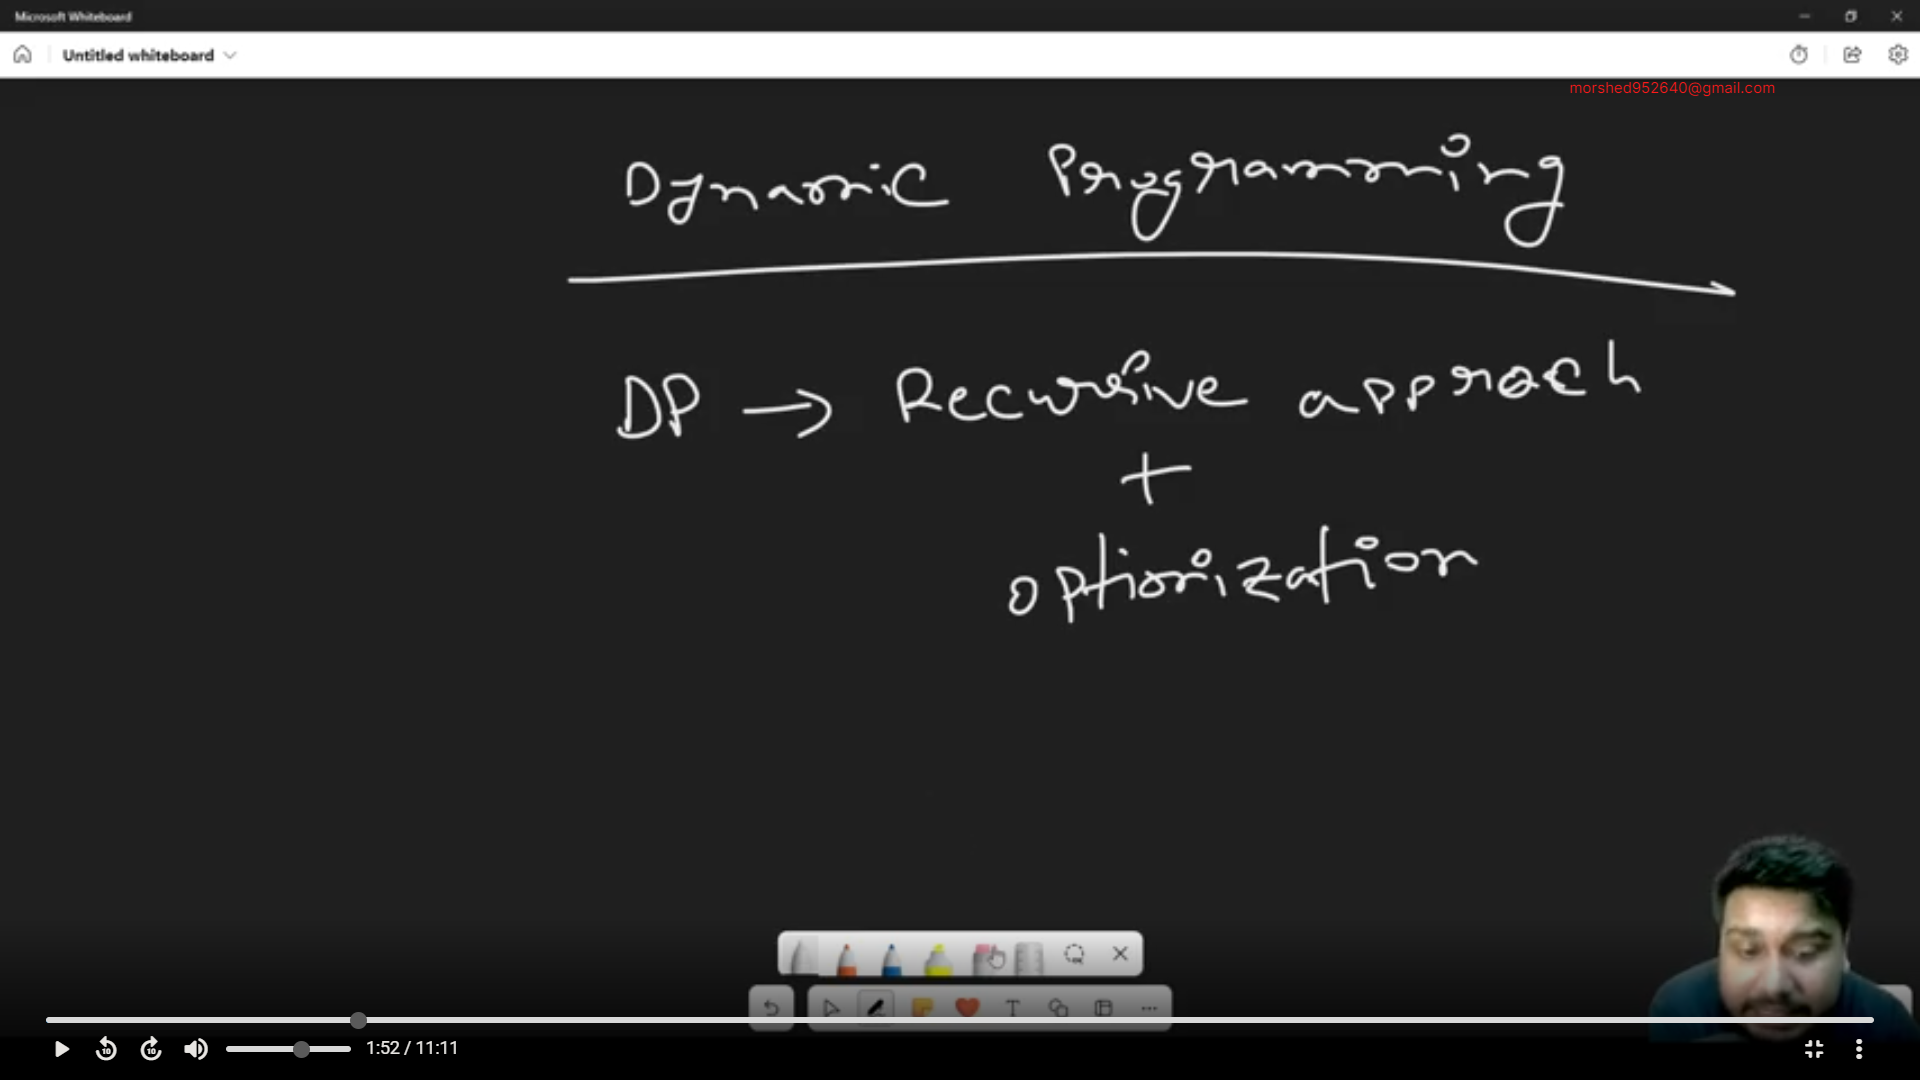 Microsoft Whiteboard
Untitled whiteboard
morshed952640@gmail.com
Dynamic Programming
DP → Recursive approach
+
optimization
1:52 / 11:11